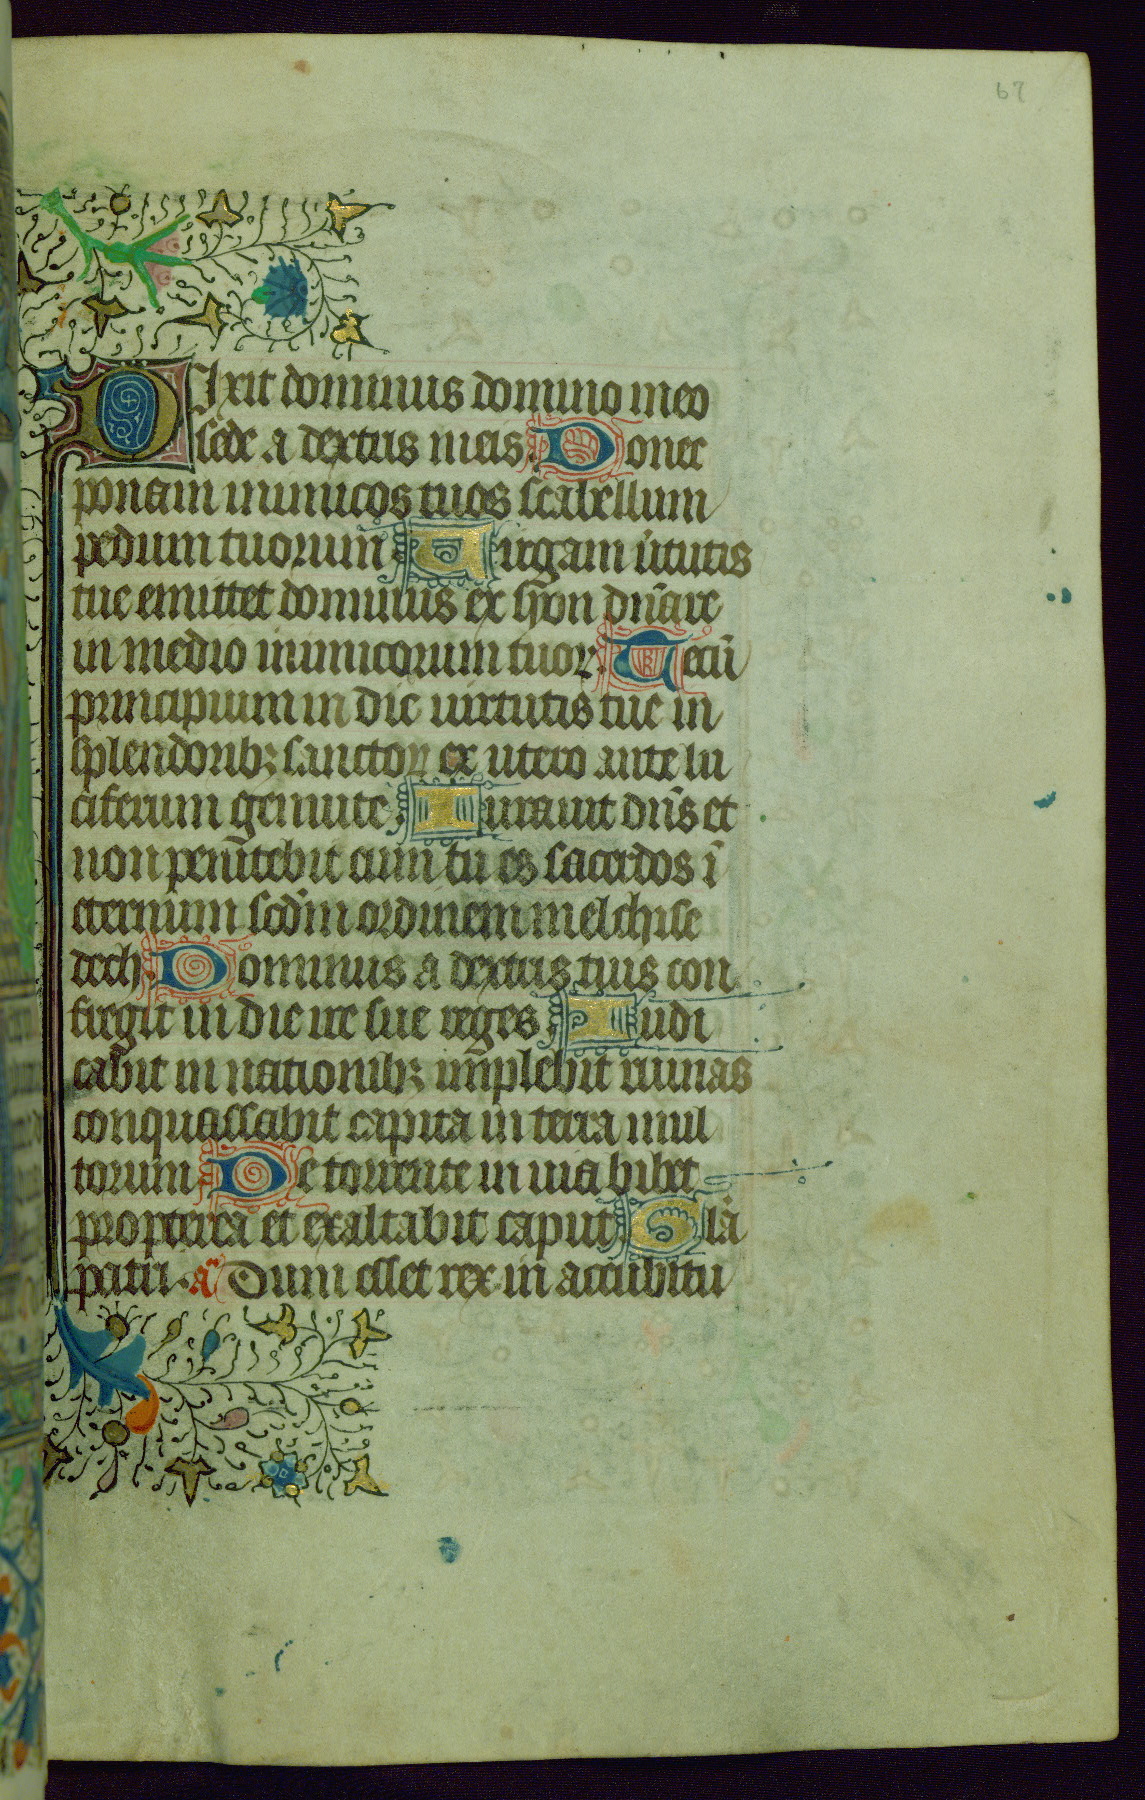 67
DIxit dominus domino meo
sede a dextris meis. Donec
ponam inimicos tuos scabellum
pedum tuorum Uirgam ũtutis
tue emittet dominus ex syon dñare
in medio inimicorum tuoꝝ. Tecũ
principium in die uirtutis tue in
splendoribꝫ sanctoꝝ ex utero ante lu
ciferum genui te. Iurauit dñs et
non penitebit eum tu es sacerdos ĩ
eternum scdm̄ ordinem melchise
dech. Dominus a dextris tuis con
fregit in die ire sue reges. Iudi
cabit in nationibꝫ implebit ruinas
conquassabit capita in terra mul
torum De torrente in uia bibet
propterea et exaltabit caput. Glã
patri. añ Dum esset rex in accubitu